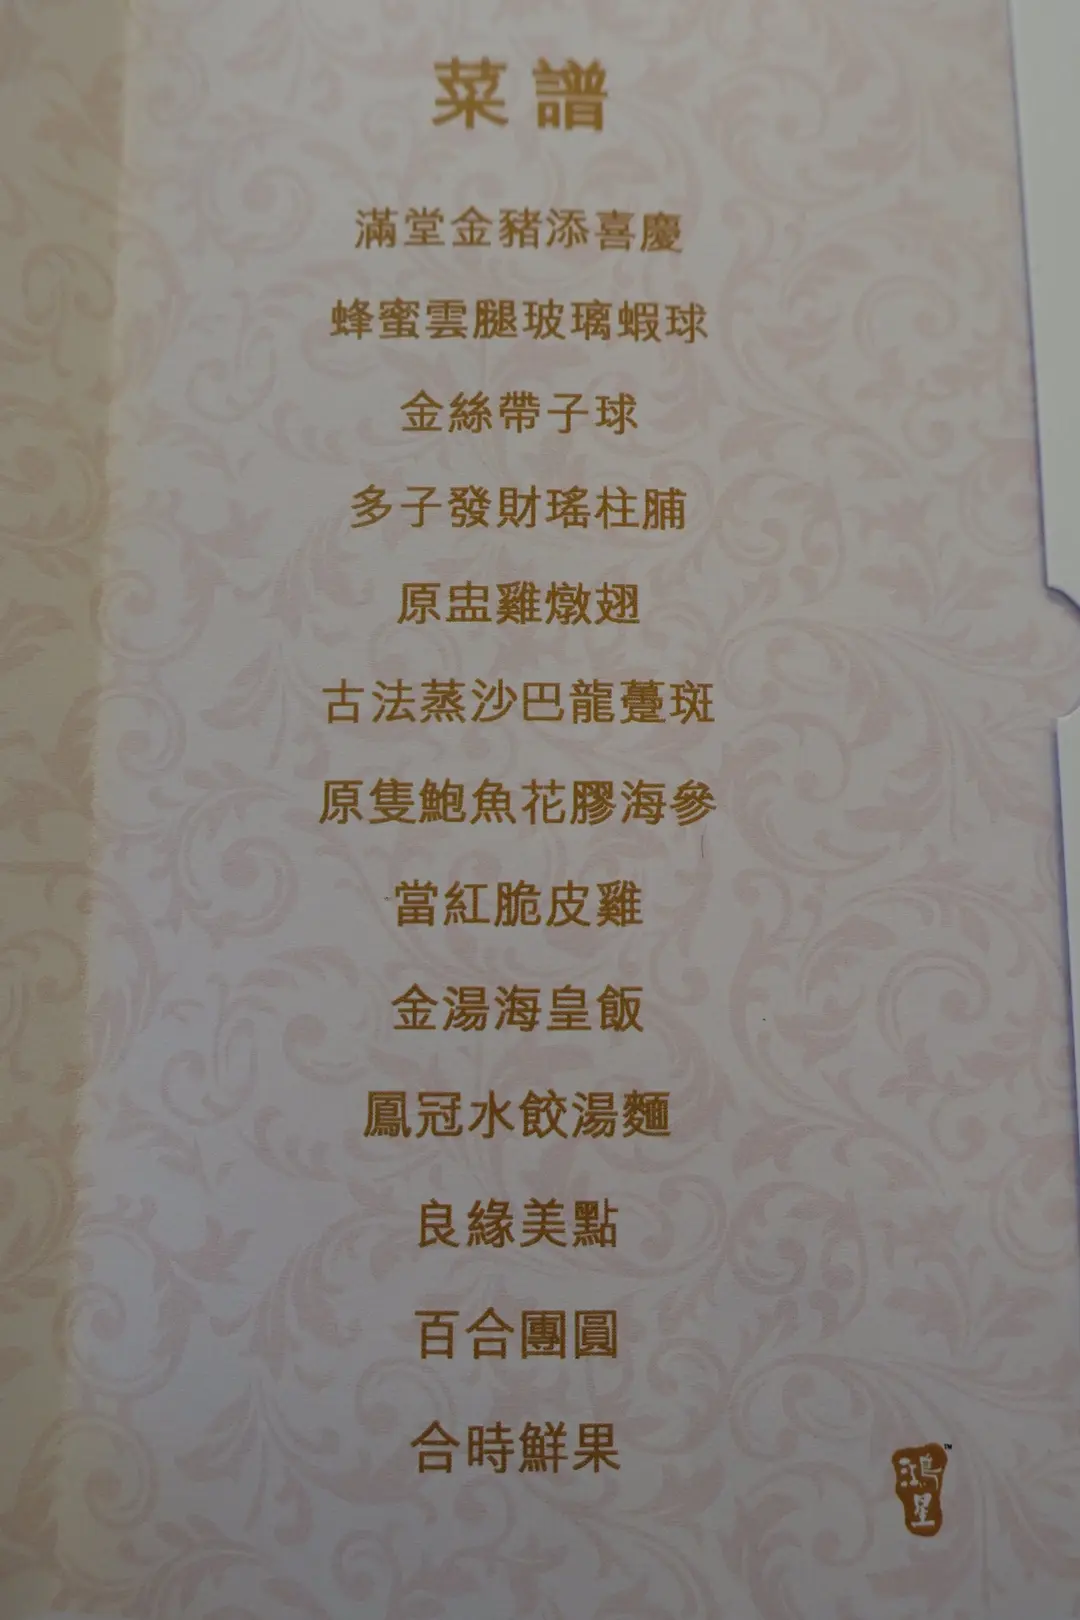 菜譜
滿堂金豬添喜慶
蜂蜜雲腿玻璃蝦球
金絲帶子球
多子發財瑤柱脯
原盅雞燉翅
古法蒸沙巴龍躉斑
原隻鮑魚花膠海參
當紅脆皮雞
金湯海皇飯
鳳冠水餃湯麵
良緣美點
百合團圓
合時鮮果
鴻星
™